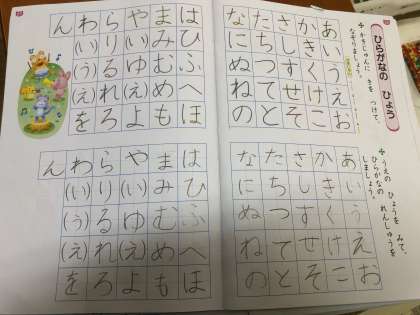 ひらがなの ひょう
かきじゅんに きを つけて、
なぞりましょう。
あいうえお
かきくけこ
さしすせそ
たちつてと
なにぬねの
はひふへほ
まみむめも
や(い)ゆ(え)よ
らりるれろ
わ(い)(う)(え)を
ん
うえの ひょうを みて、
ひらがなの れんしゅうを
しましょう。
あいうえお
かきくけこ
さしすせそ
たちつてと
なにぬねの
はひふへほ
まみむめも
や(い)ゆ(え)よ
らりるれろ
わ(い)(う)(え)を
ん